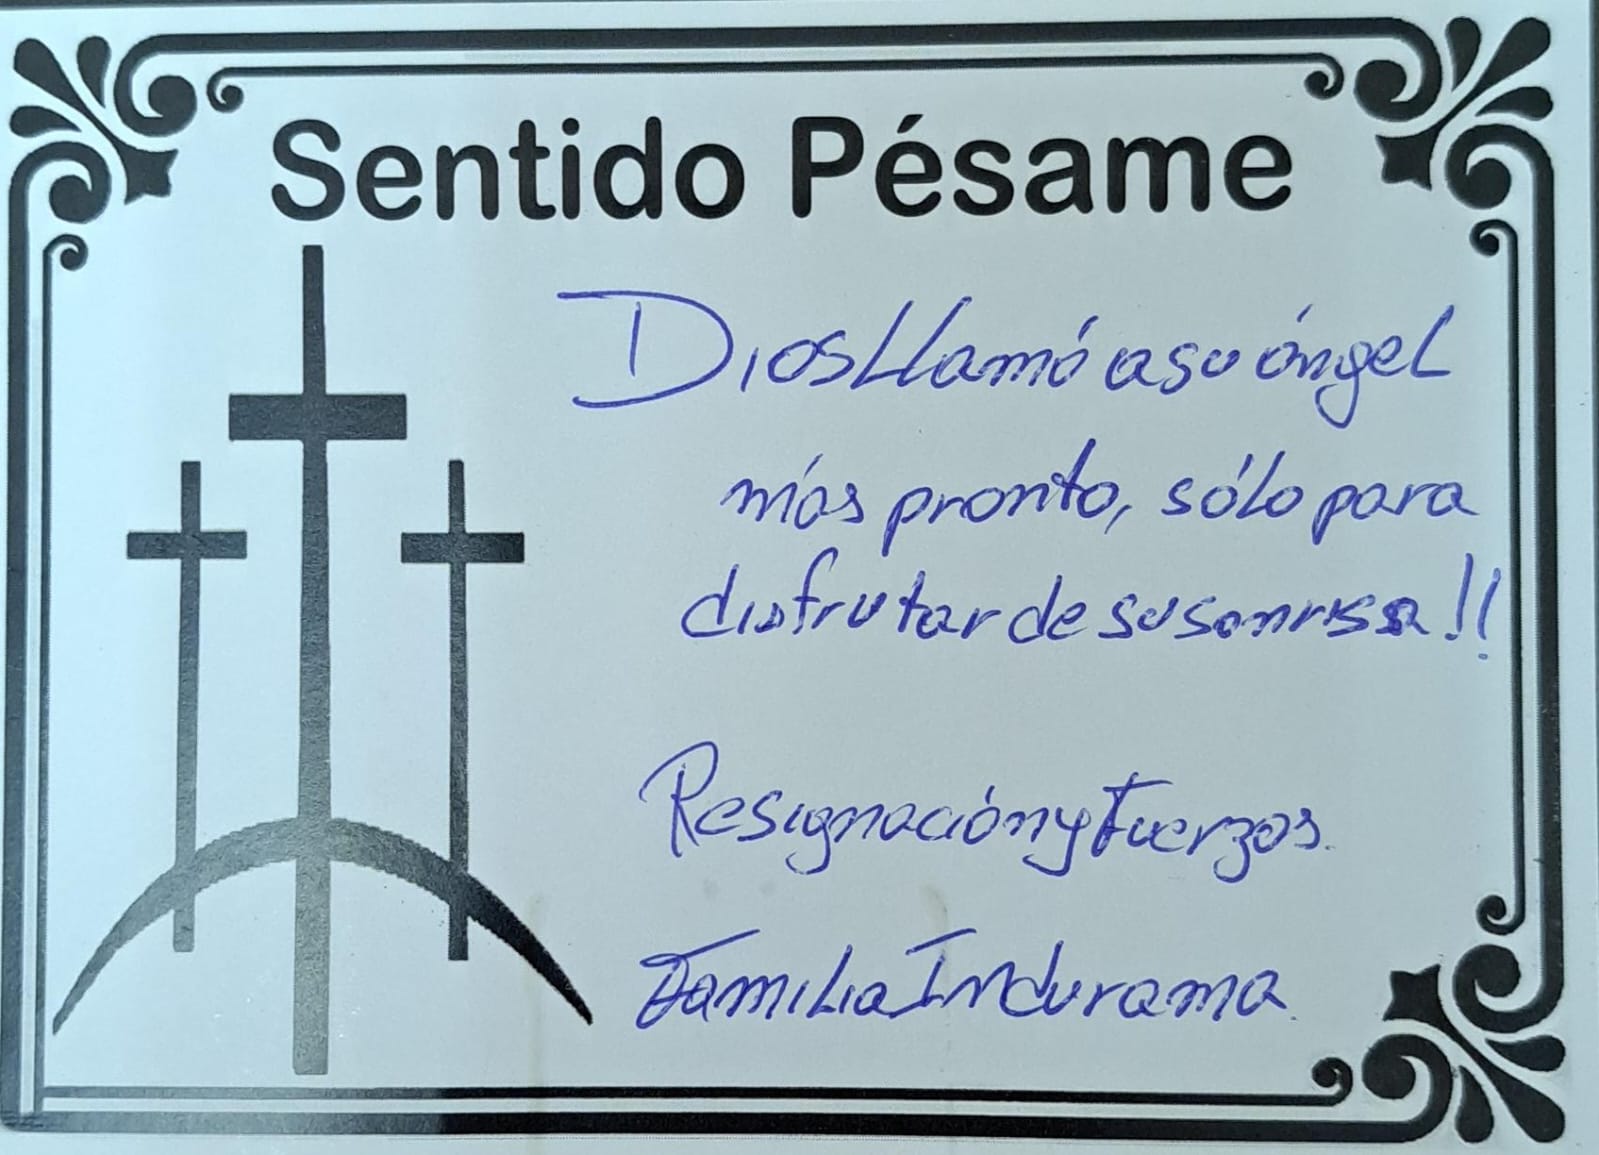 Sentido Pésame
Dios Llamó a su ángel
más pronto, sólo para
disfrutar de su sonrisa!!
Resignación y Fuerzas.
Familia Indurama.